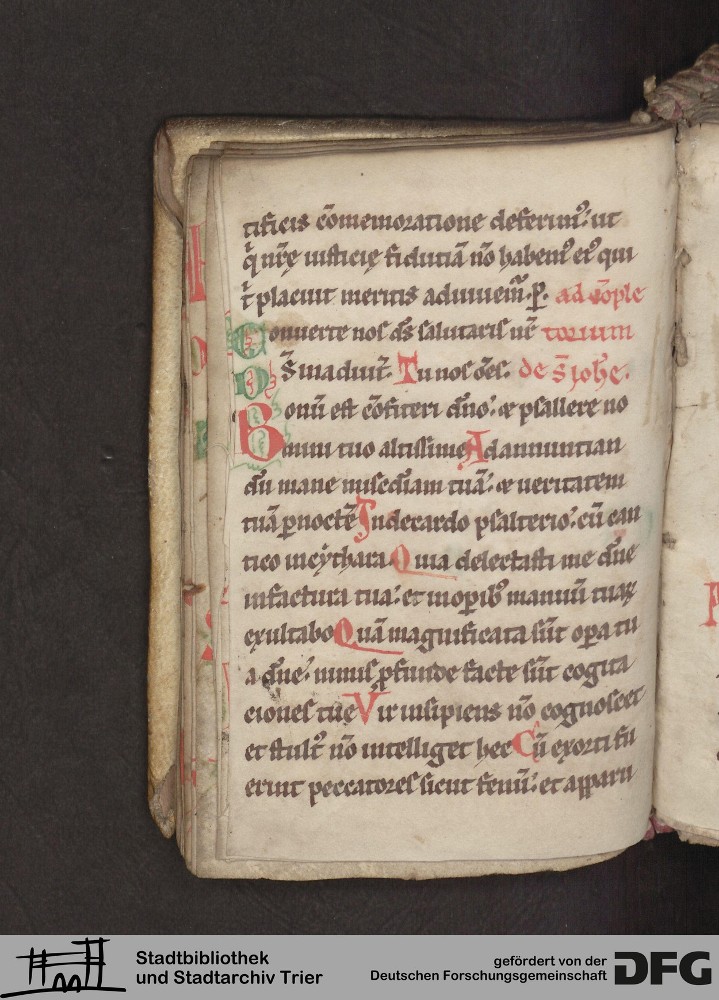 tificis cōmemoratione deferim⁹. ut
q̇ nr̄ę iusticię fiduciā nō habem⁹ ei⁹ qui
t̄ placuit meritis adiuuem̄. ꝑ. ad cōple
Conuerte nos d̄s salutaris n̄r torium
D S̄ in adiut̄. Tu nos ōēs. de s̄ ioh̄e.
Bonū est cōfiteri dn̄o. ⁊ psallere no
mini tuo altissime Ad annuntian
dū mane misc̄diam tuā. ⁊ ueritatem
tuā ꝑ noctē In decacordo psalterio. cū can
tico in cythara. Quia delectasti me dn̄e
in factura tua. et in oꝑib⁹ manuū tuaꝝ
exultabo Quā magnificata sūt oꝑa tu
a dn̄e. nimis ꝓfunde facte sūt cogita
ciones tuę Vir insipiens nō cognoscet
et stult⁹ nō intelliget hec Cū exorti fu
erint peccatores sicut fenū. et apparu
Stadtbibliothek
und Stadtarchiv Trier
gefördert von der
Deutschen Forschungsgemeinschaft
DFG